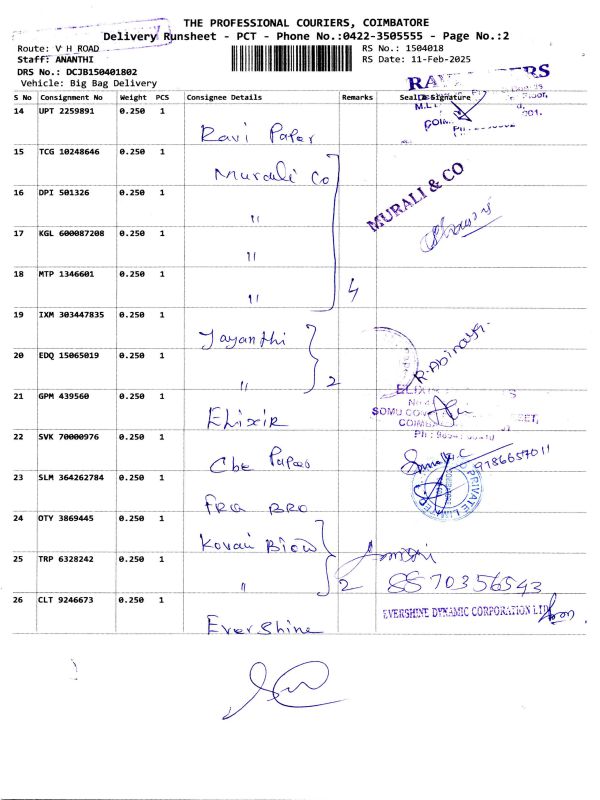 THE PROFESSIONAL COURIERS, COIMBATORE
Delivery Runsheet - PCT - Phone No.:0422-3505555 - Page No.:2
Route: V H_ROAD
RS No.: 1504018
Staff: ANANTHI
RS Date: 11-Feb-2025
DRS No.: DCJB150401802
Vehicle: Big Bag Delivery
S No Consignment No Weight PCS Consignee Details Remarks Seal & Signature
14 UPT 2259891 0.250 1
Ravi Paper
15 TCG 10248646 0.250 1
Murali Co
MURALI & CO
16 DPI 501326 0.250 1
"
17 KGL 600087208 0.250 1
"
18 MTP 1346601 0.250 1
" 4
19 IXM 303447835 0.250 1
Jayanthi
R.Abinaya.
20 EDQ 15065019 0.250 1
" 2
21 GPM 439560 0.250 1
ELIXIR
SOMU
Ph :
22 SVK 70000976 0.250 1
Cbe Papers
9786657011
23 SLM 364262784 0.250 1
FRA BRO
PRIVATE LIMITED
24 OTY 3869445 0.250 1
Kovai
25 TRP 6328242 0.250 1
" 2
8570356543
26 CLT 9246673 0.250 1
EVERSHINE DYNAMIC CORPORATION LTD
EverShine